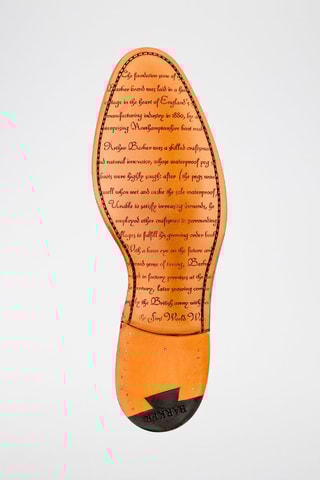 The foundation stone of
Barker brand was laid in a
in the heart of England's
manufacturing industry in 1880, by
Northamptonshire boot
Arthur Barker was a skilled craftsman
and natural innovator, whose waterproof peg
boots were highly sought after (the pegs
swell when wet and make the sole waterproof
Unable to satisfy increasing demands, he
employed other craftsmen in surrounding
villages to fulfill his growing order book
With a keen eye on the future and
sense of timing, Barker
in factory premises at the
century, later securing
the British army with
the First World W
BARKER